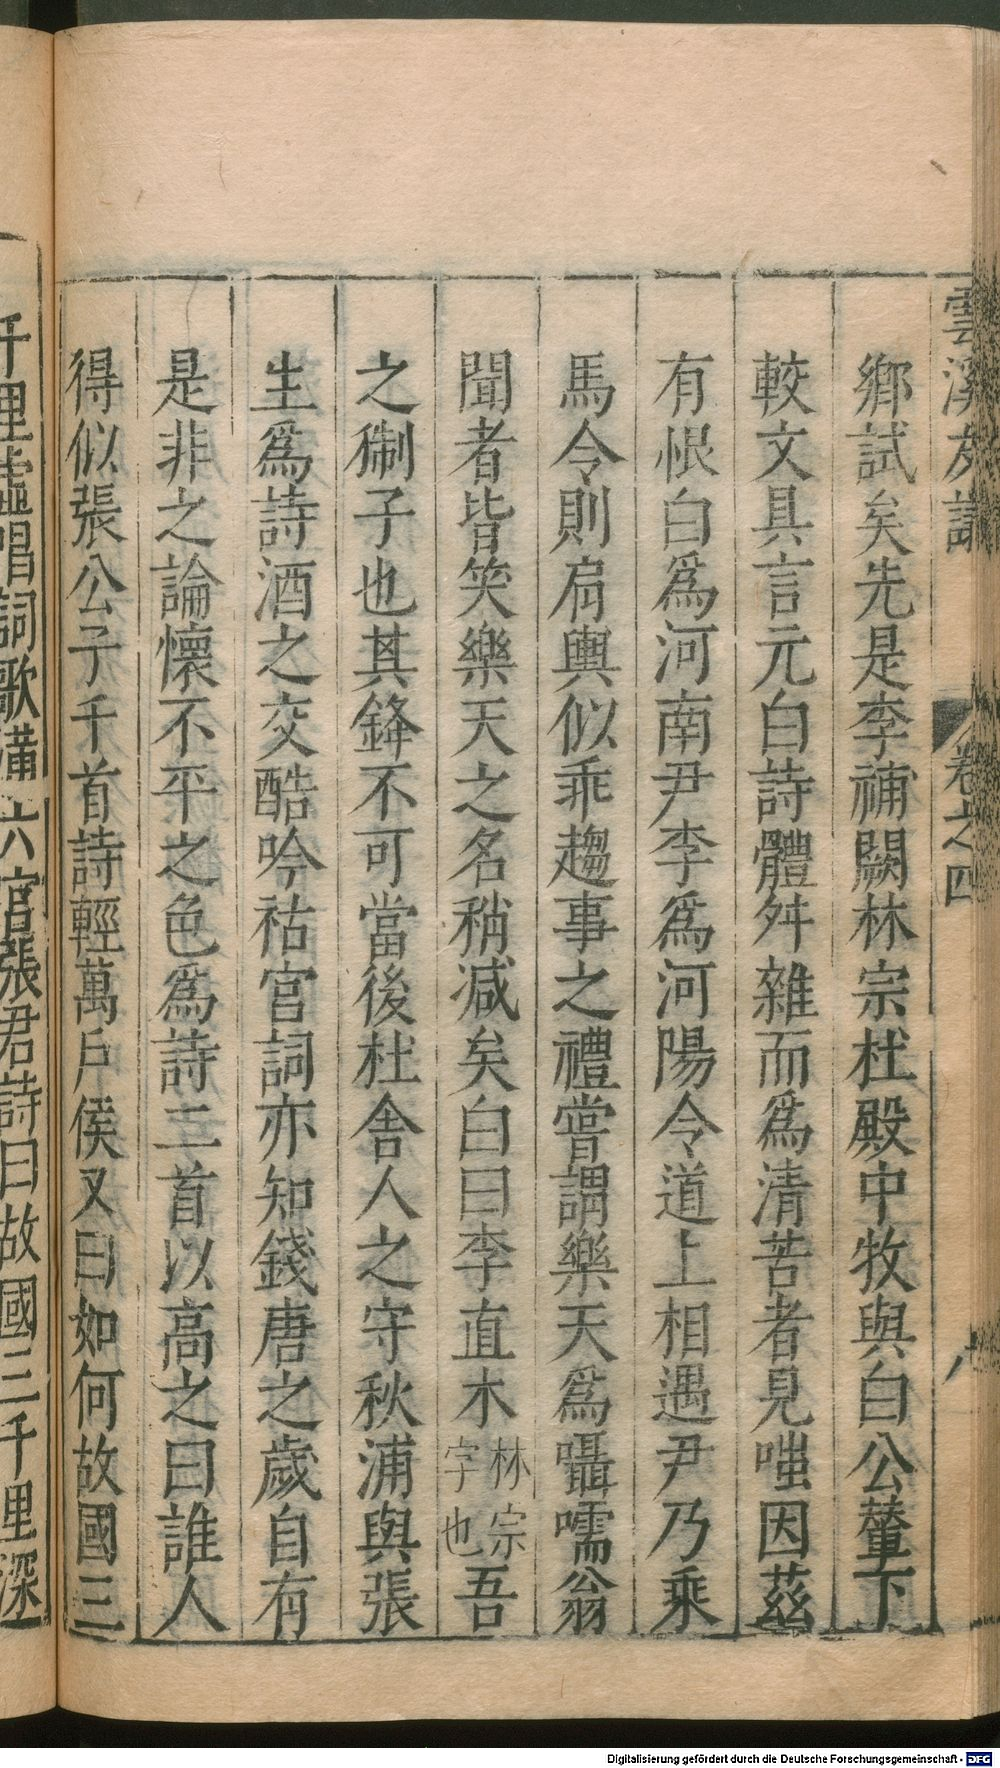 雲溪友議
卷之四
鄉試矣先是李補闕林宗杜殿中牧與白公輦下
較文具言元白詩體舛雜而爲清苦者見嗤因茲
有恨白爲河南尹李爲河陽令道上相遇尹乃乘
馬令則肩輿似乖趨事之禮嘗謂樂天爲囁嚅翁
聞者皆笑樂天之名稍减矣白曰李直木林宗字也吾
之猘子也其鋒不可當後杜舍人之守秋浦與張
生爲詩酒之交酷吟祜宫詞亦知錢唐之歲自有
是非之論懷不平之色爲詩二首以高之曰誰人
得似張公子千首詩輕萬戶侯又曰如何故國三
千里虛唱詞歌滿六宫張君詩曰故國三千里深
Digitalisierung gefördert durch die Deutsche Forschungsgemeinschaft - DFG